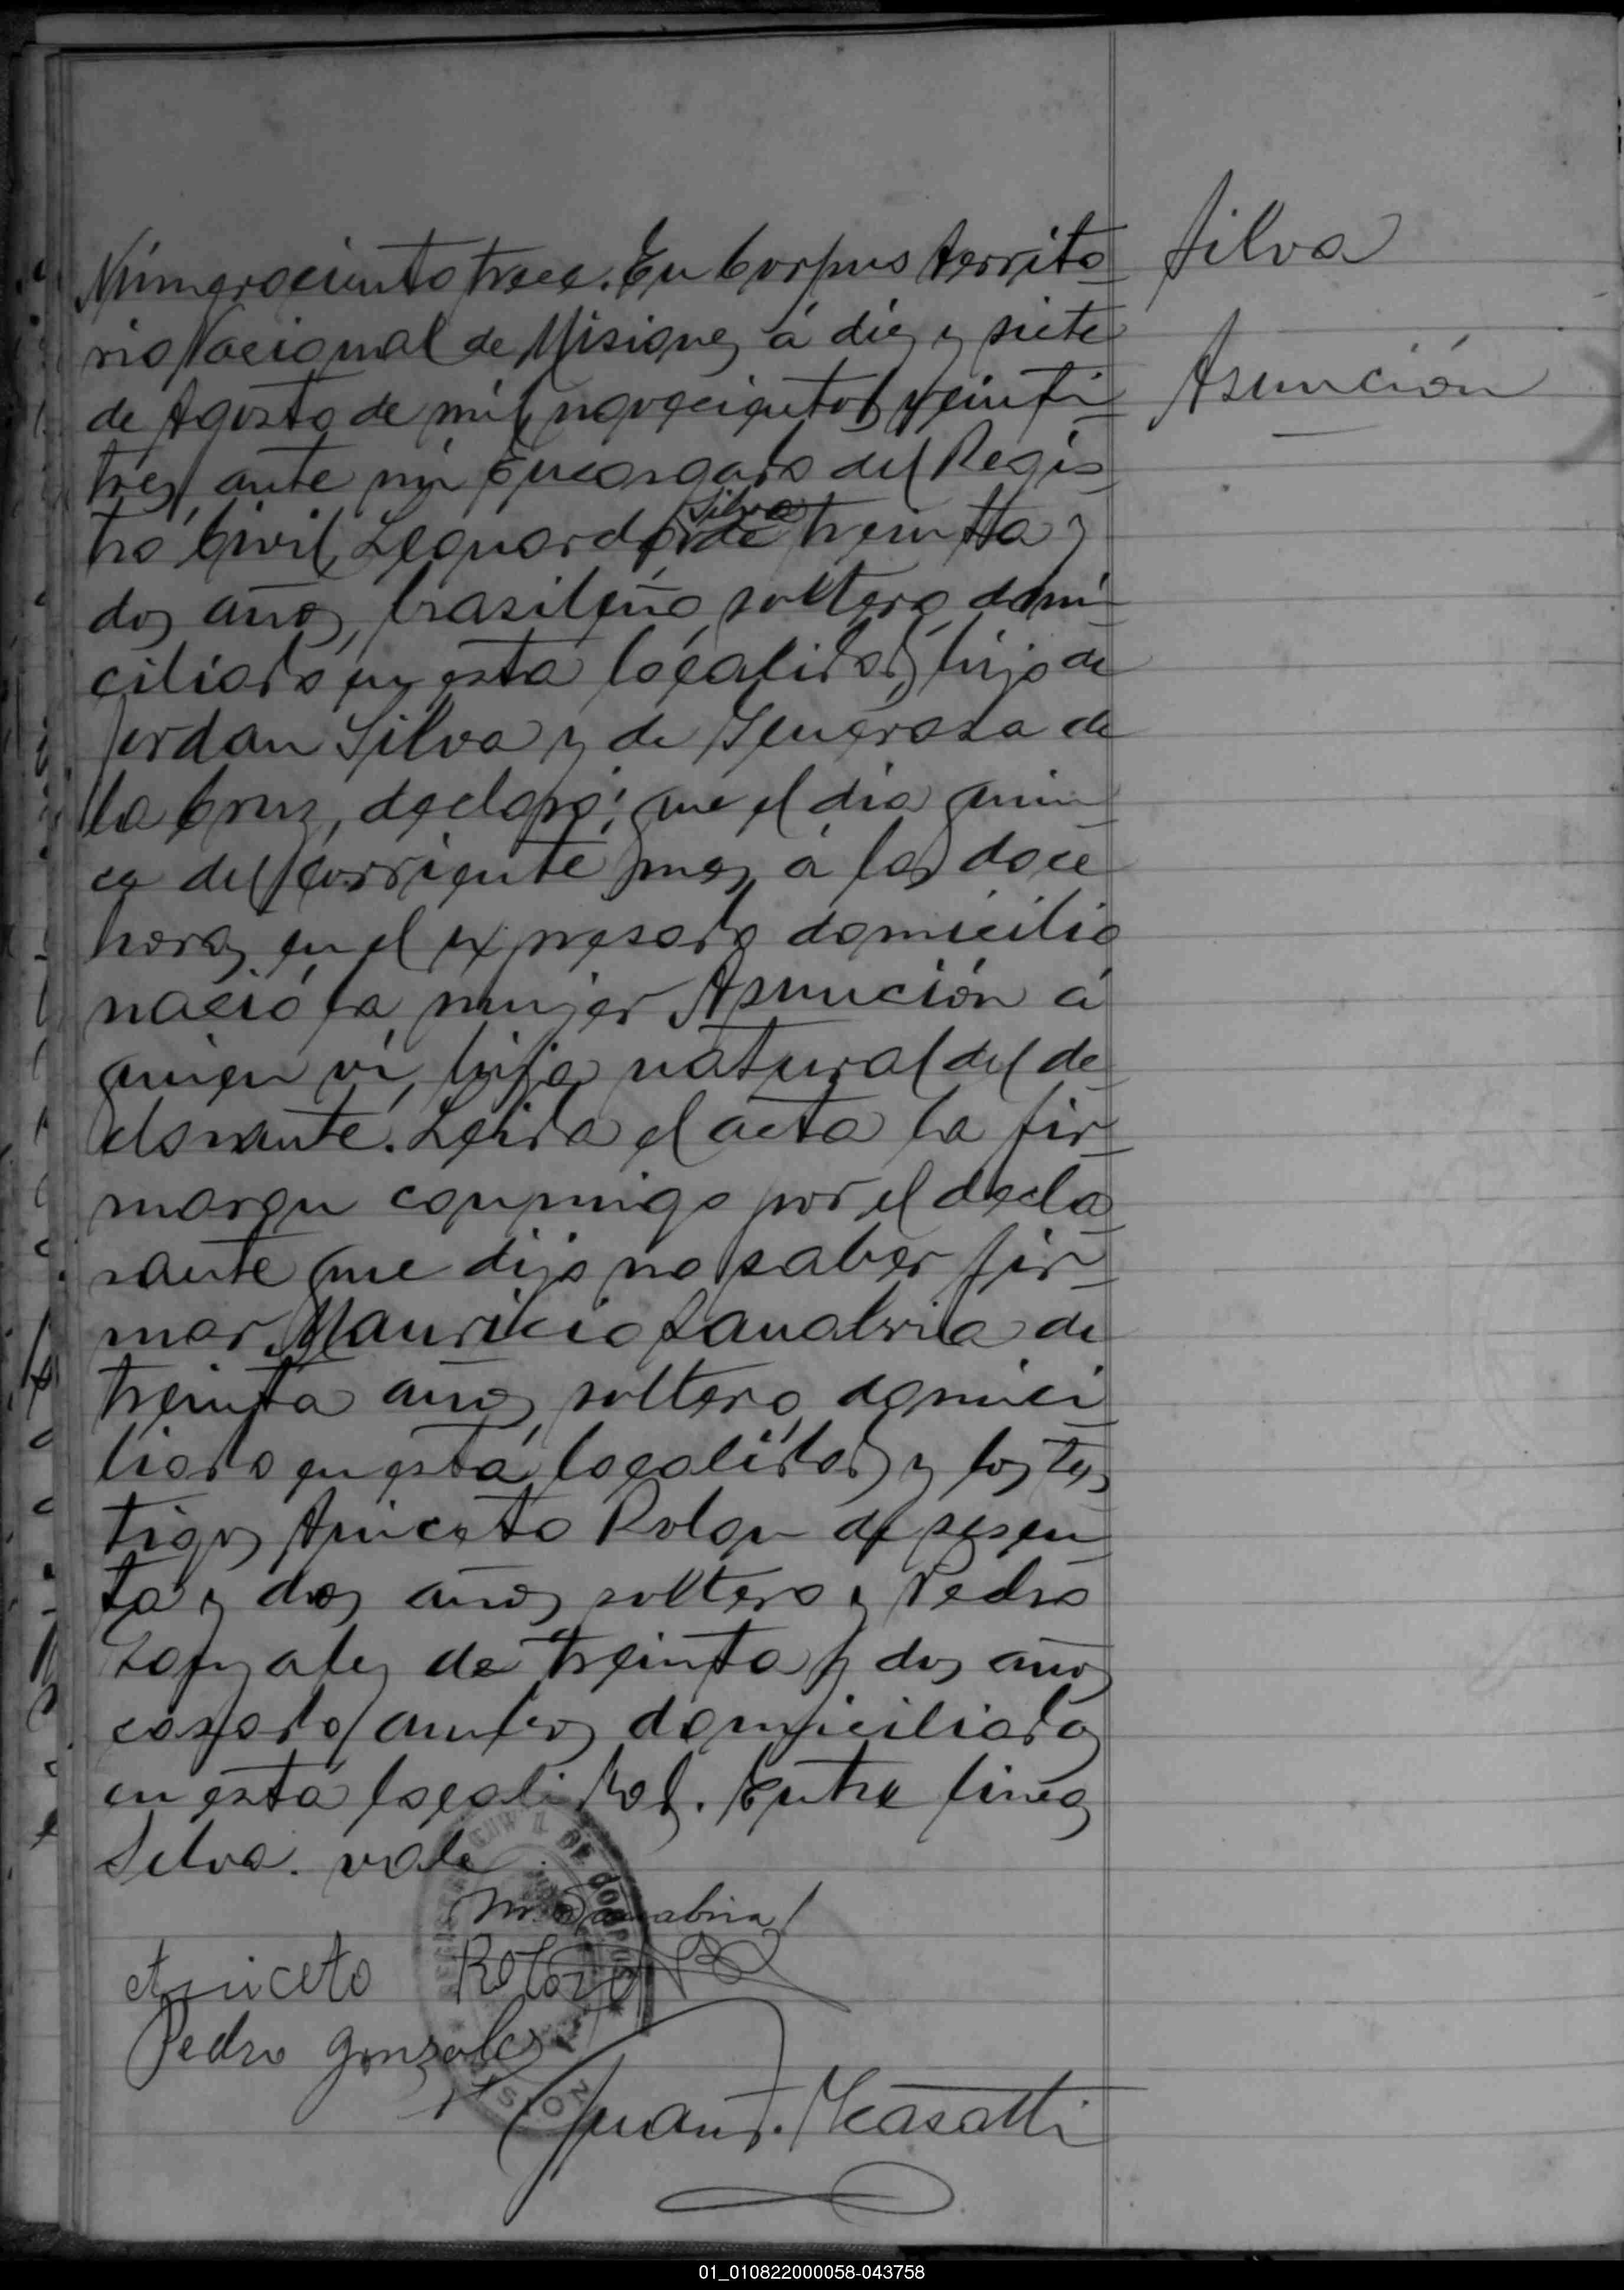 Silva
Asunción
Número ciento trece. En Corpus Territo
rio Nacional de Misiones á diez y siete
de Agosto de mil novecientos veinti
tres, ante mi Encargado del Regis
tro Civil, Leonardo Silva de treinta y
dos años, brasileño, soltero, domi
ciliado en esta localidad, hijo de
Jordan Silva y de Generosa de
la Cruz, declaró: que el dia quin
ce del corriente mes, á las doce
horas en el expresado domicilio
nació la mujer Asunción á
quien vi, hija natural del de
clarante. Leida el acta la fir
maron conmigo por el decla
rante que dijo no saber fir
mar, Mauricio Sanabria de
treinta años, soltero, domici
liado en esta localidad y los tes
tigos Aniceto Rolon de sesen
ta y dos años soltero y Pedro
Gonzalez de treinta y dos años
casado, ambos domiciliados
en esta localidad. Entre lineas
Silva. vale
M. Sanabria
Aniceto Rolon
Pedro Gonzales
Juan
DE CORPUS
MISION
01_010822000058-043758